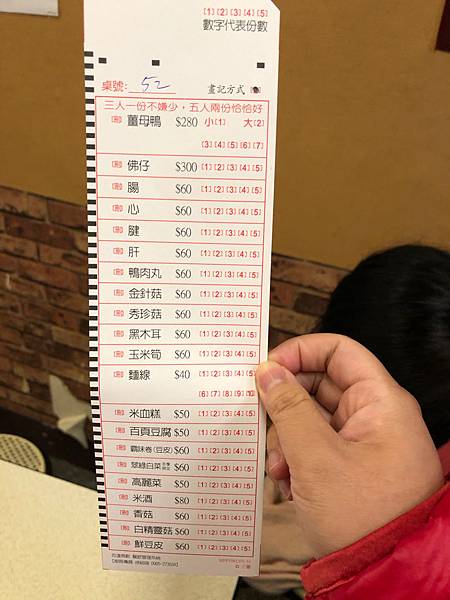 [1] [2] [3] [4] [5]
數字代表份數
桌號: 52 畫記方式
三人一份不嫌少，五人兩份恰恰好
薑母鴨 $280 小[1] 大[2]
[3] [4] [5] [6] [7]
佛仔 $300 [1] [2] [3] [4] [5]
腸 $60 [1] [2] [3] [4] [5]
心 $60 [1] [2] [3] [4] [5]
腱 $60 [1] [2] [3] [4] [5]
肝 $60 [1] [2] [3] [4] [5]
鴨肉丸 $60 [1] [2] [3] [4] [5]
金針菇 $60 [1] [2] [3] [4] [5]
秀珍菇 $60 [1] [2] [3] [4] [5]
黑木耳 $60 [1] [2] [3] [4] [5]
玉米筍 $60 [1] [2] [3] [4] [5]
麵線 $40 [1] [2] [3] [4] [5]
[6] [7] [8] [9] [10]
米血糕 $50 [1] [2] [3] [4] [5]
百頁豆腐 $50 [1] [2] [3] [4] [5]
霸味卷(豆皮) $60 [1] [2] [3] [4] [5]
翠綠白菜 $60 [1] [2] [3] [4] [5]
高麗菜 $50 [1] [2] [3] [4] [5]
米酒 $80 [1] [2] [3] [4] [5]
香菇 $60 [1] [2] [3] [4] [5]
白精靈菇 $60 [1] [2] [3] [4] [5]
鮮豆皮 $60 [1] [2] [3] [4] [5]